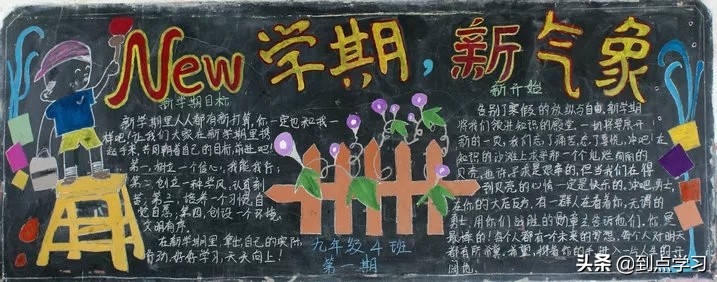 New 学期,新气象
新学期目标
新学期里人人都有新打算,你一定也和我一
样吧!让我们大家在新学期里携
起手来,共同朝着自己的目标前进吧!
第一,树立一个信心,我能我行;
第二,创立一种学风,认真刻
苦;第三,培养一个习惯,自
觉自愿;第四,创设一个环境,
文明有序。
在新学期里,拿出自己的实际
行动,好好学习,天天向上!
九年级4班
第一期
新开始
告别了寒假的放纵与自由,新学期
将我们领进知识的殿堂,一切将要展开
新的一页,我们忘了痛苦,忘了曾经,冲吧!在
知识的沙滩上寻那一个个
贝壳,也许寻求是艰辛的,但当我们在得
到贝壳的心情一定是快乐的,冲吧,勇士,
在你的大后方,有一群人在看着你,无谓的
勇士,用你们战胜的勋章去告诉他们,你是
最棒的!每个人都有一个未来的梦想,每个人对明天
都有所希冀,希望,
头条 @到点学习